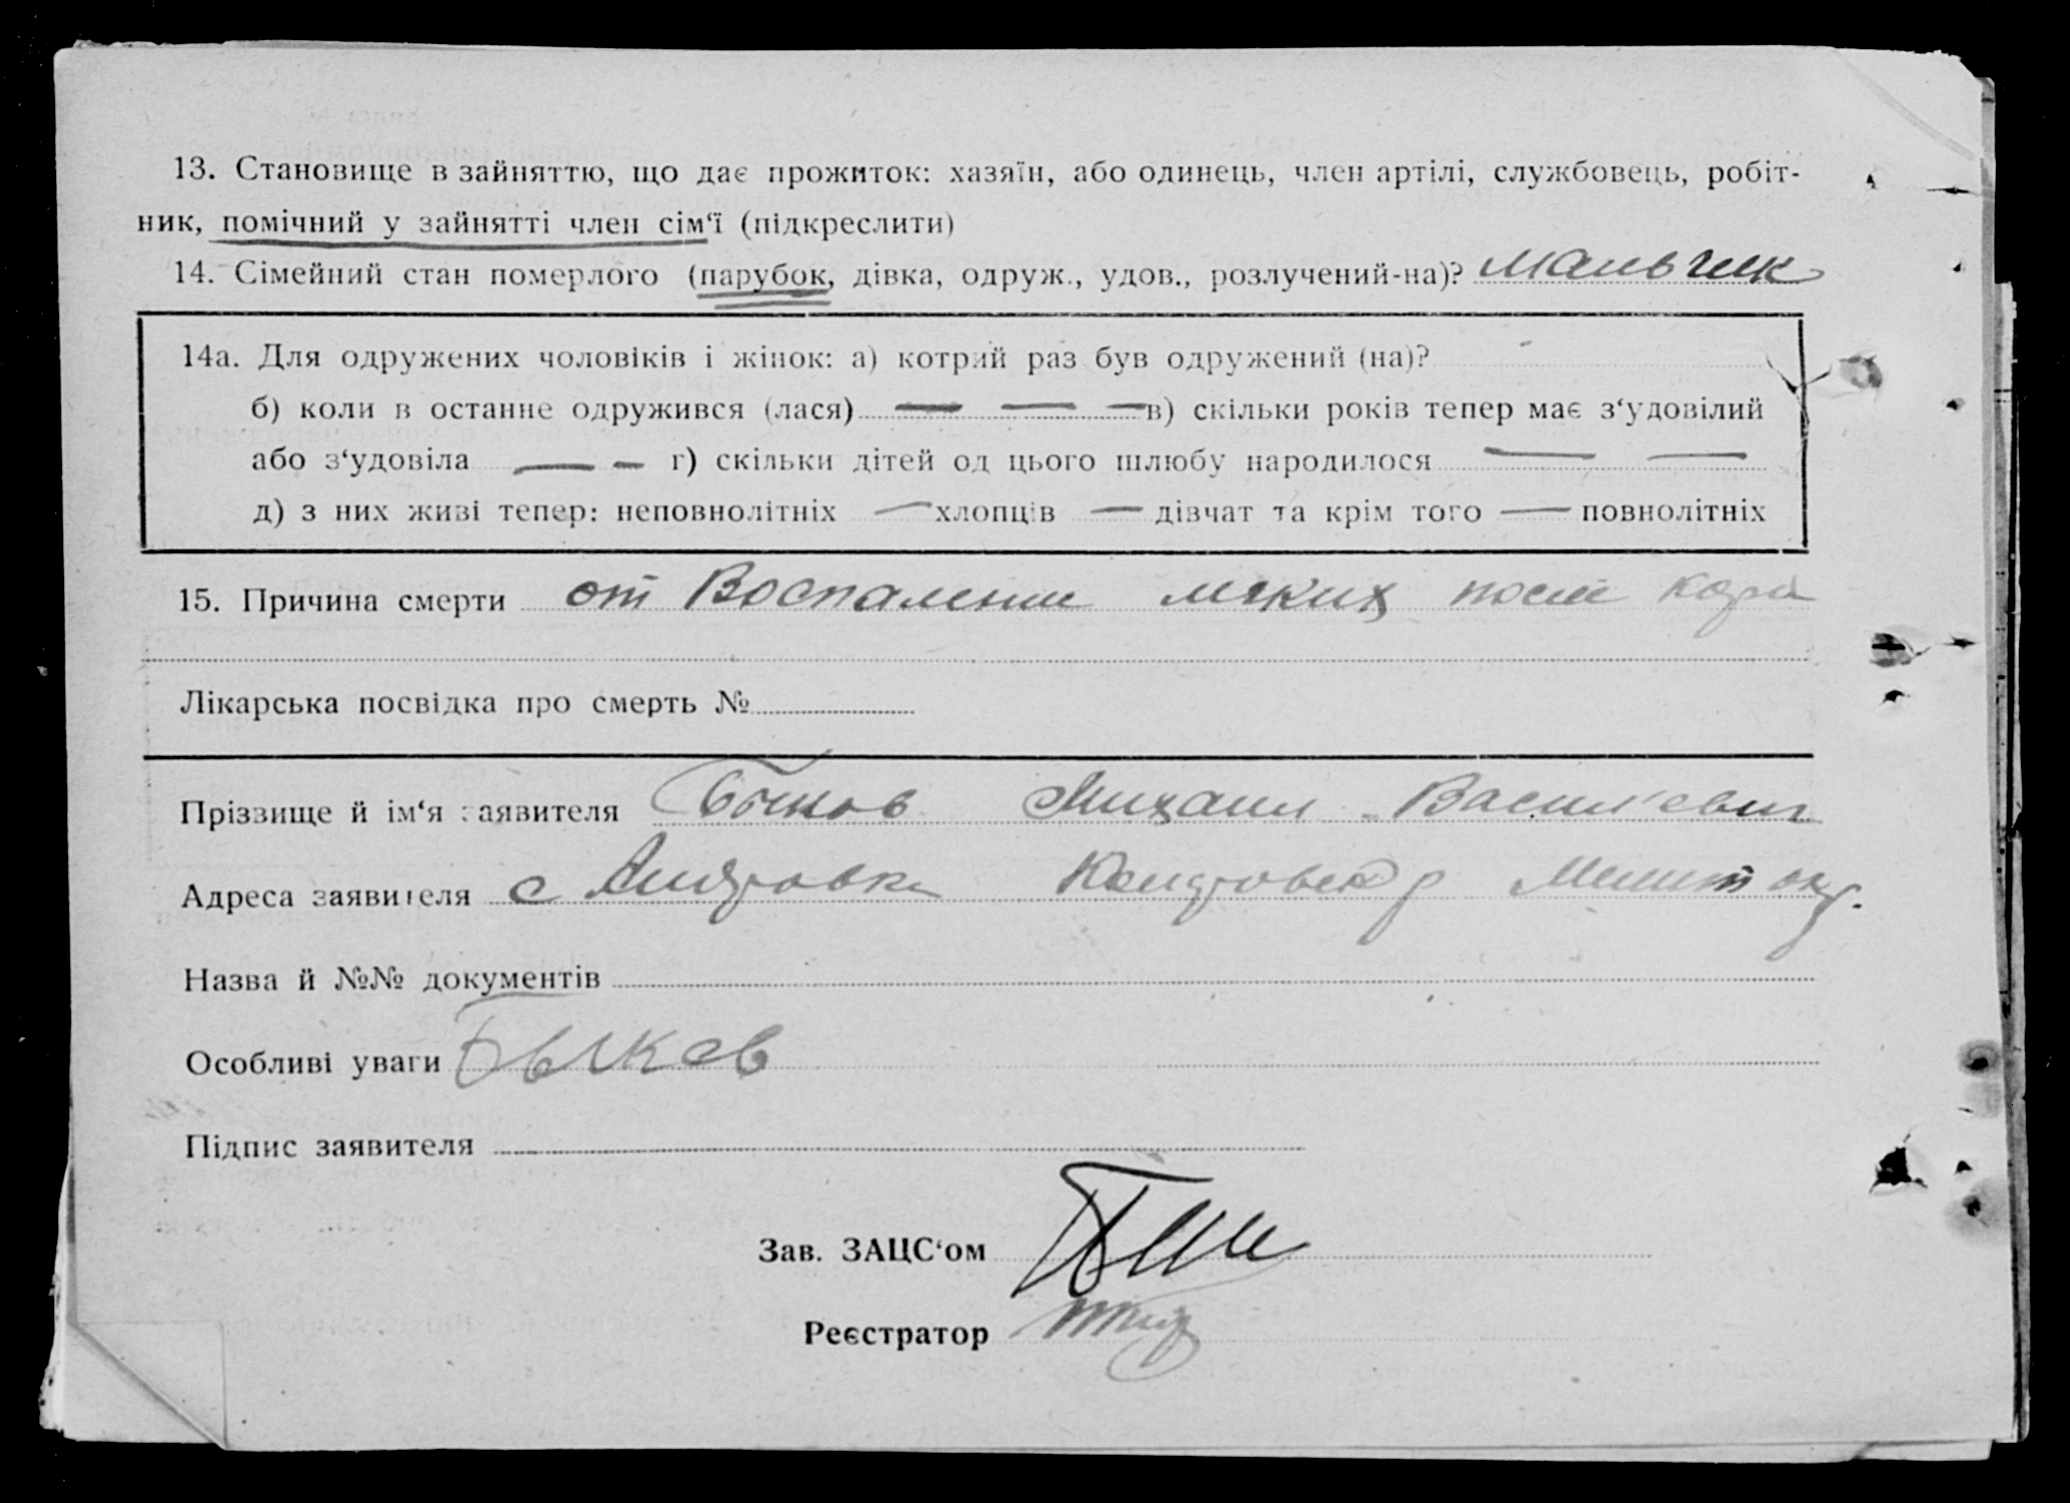 13. Становище в зайняттю, що дає прожиток: хазяїн, або одинець, член артілі, службовець, робіт-
ник, помічний у зайнятті член сім‘ї (підкреслити)
14. Сімейний стан померлого (парубок, дівка, одруж., удов., розлучений-на)? мальчик
14а. Для одружених чоловіків і жінок: а) котрий раз був одружений (на)?
б) коли в останнє одружився (лася) — — — в) скільки років тепер має з‘удовілий
або з‘удовіла — — г) скільки дітей од цього шлюбу народилося — —
д) з них живі тепер: неповнолітніх — хлопців — дівчат та крім того — повнолітніх
15. Причина смерти от Воспаления мяких после кори
Лікарська посвідка про смерть №
Прізвище й ім‘я заявителя Быков Михаил Василевич
Адреса заявителя с р Мелит окр.
Назва й №№ документів
Особливі уваги Быков
Підпис заявителя
Зав. ЗАЦС‘ом
Реєстратор